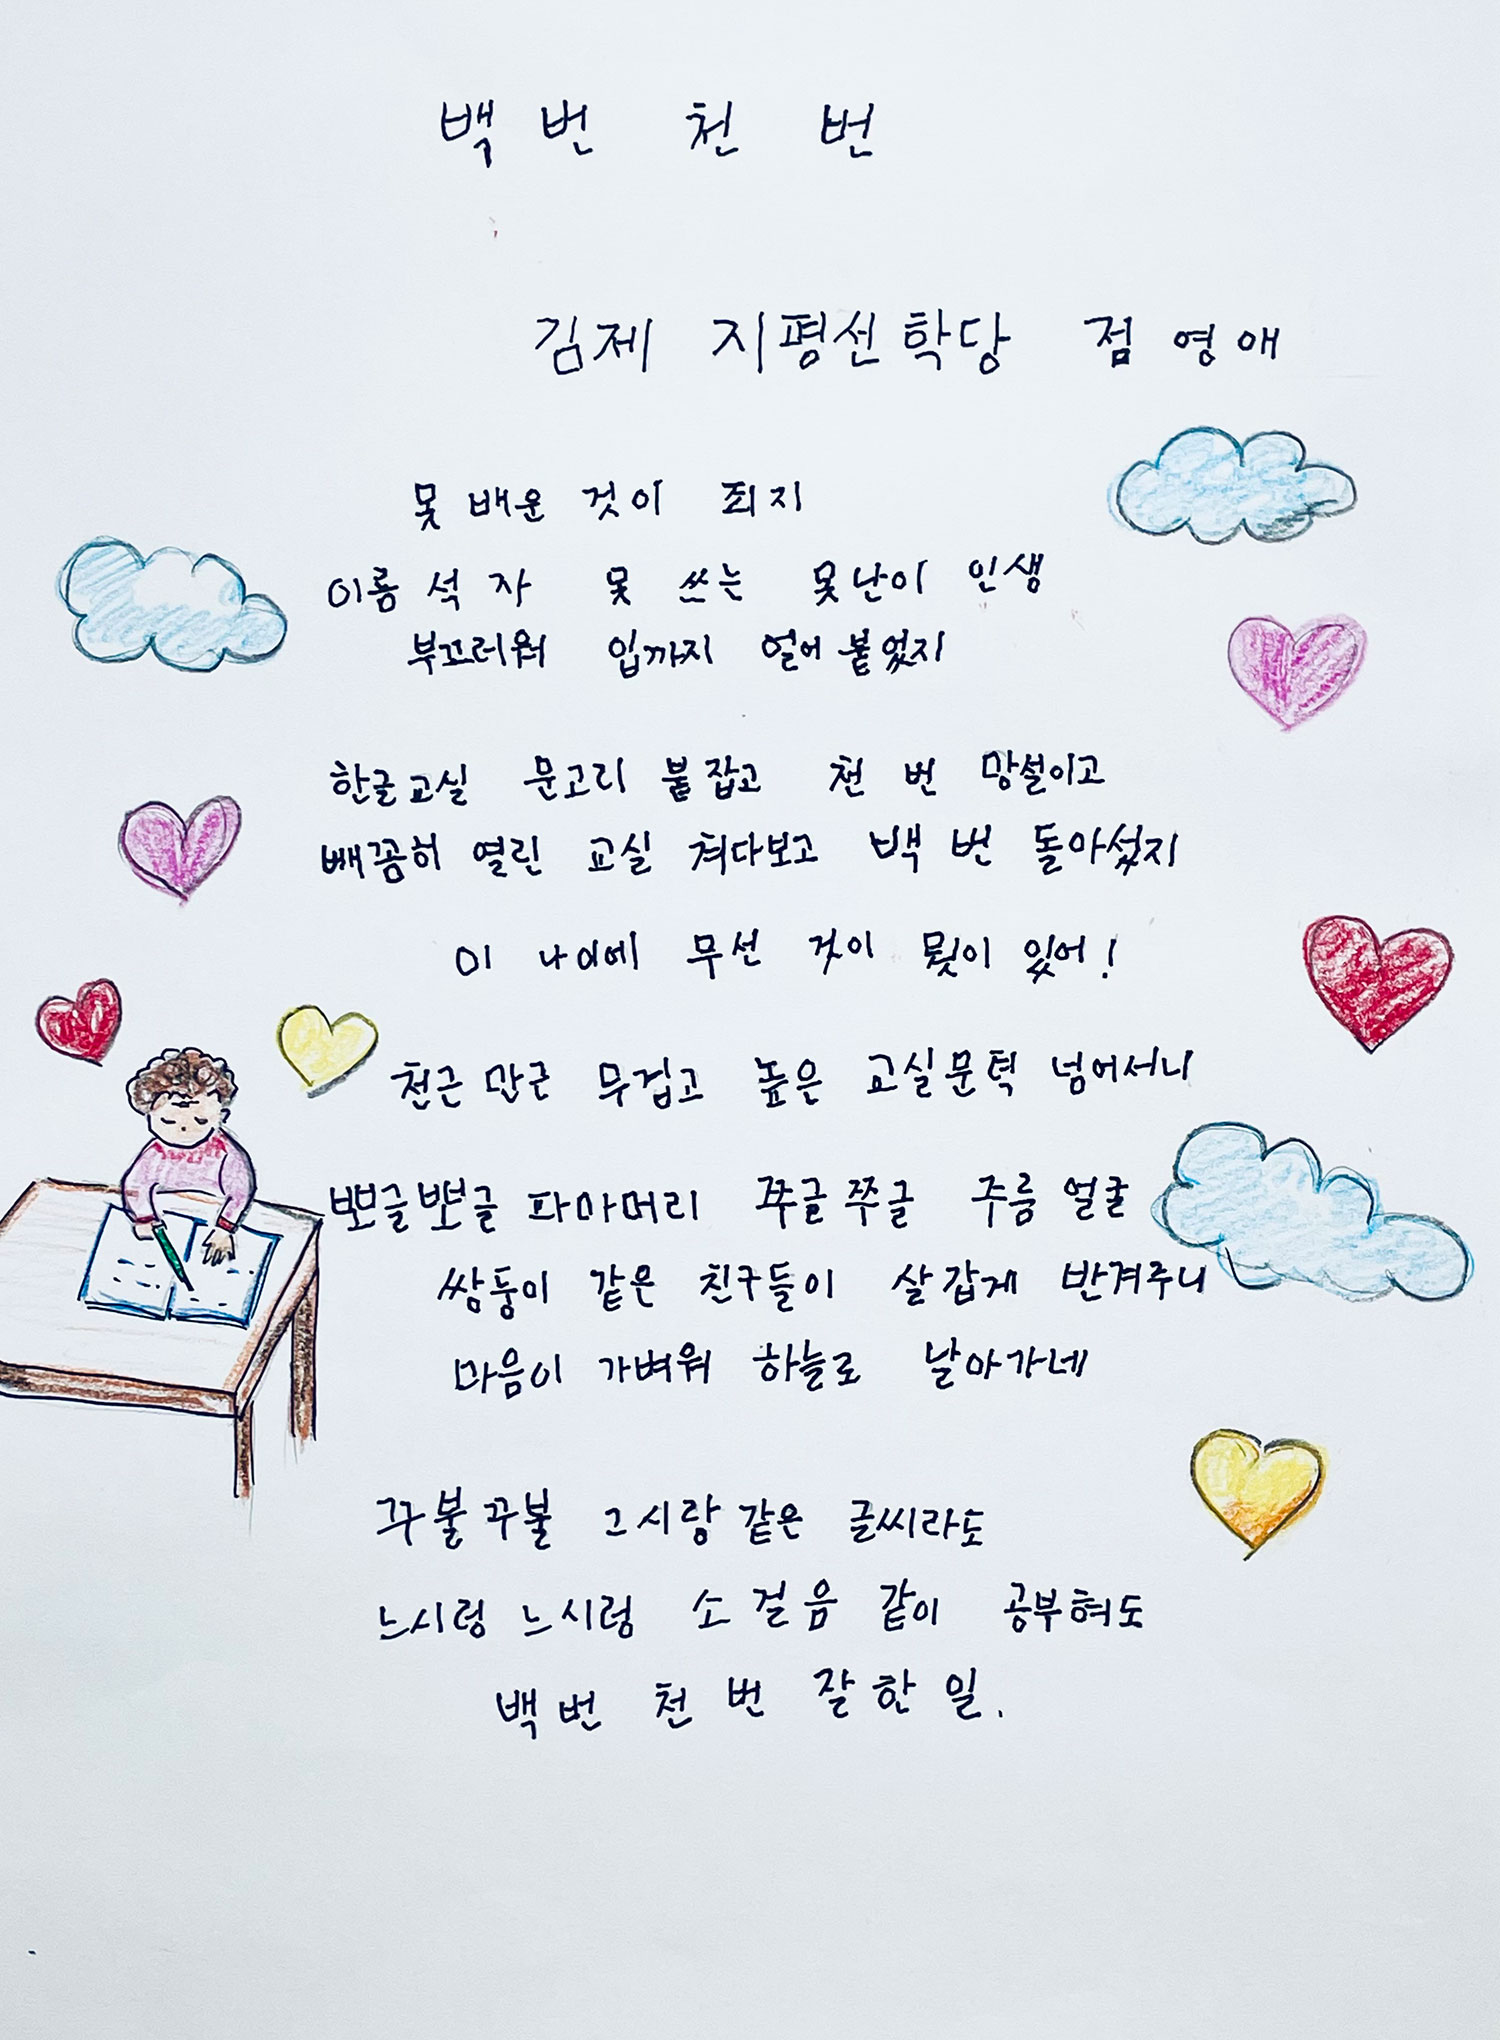 백번 천 번
김제 지평선학당 점영애
못 배운 것이 죄지
이름 석 자 못 쓰는 못난이 인생
부끄러워 입까지 얼어 붙었지
한글교실 문고리 붙잡고 천 번 망설이고
빼꼼히 열린 교실 쳐다보고 백 번 돌아섰지
이 나이에 무선 것이 뭣이 있어!
천근만근 무겁고 높은 교실문턱 넘어서니
뽀글뽀글 파마머리 쭈글쭈글 주름 얼굴
쌈둥이 같은 친구들이 살갑게 반겨주니
마음이 가벼워 하늘로 날아가네
꾸불꾸불 그시랑 같은 글씨라도
느시렁 느시렁 소 걸음 같이 공부혀도
백번 천 번 잘한 일.